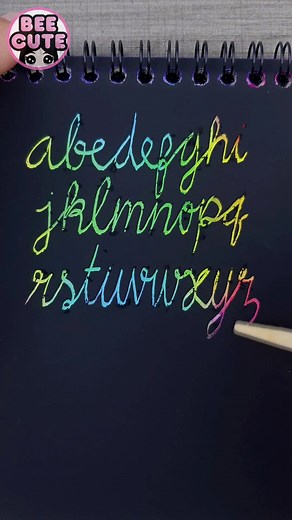 BEE
CUTE
abcdefghi
jklmnopq
rstuvwxyz